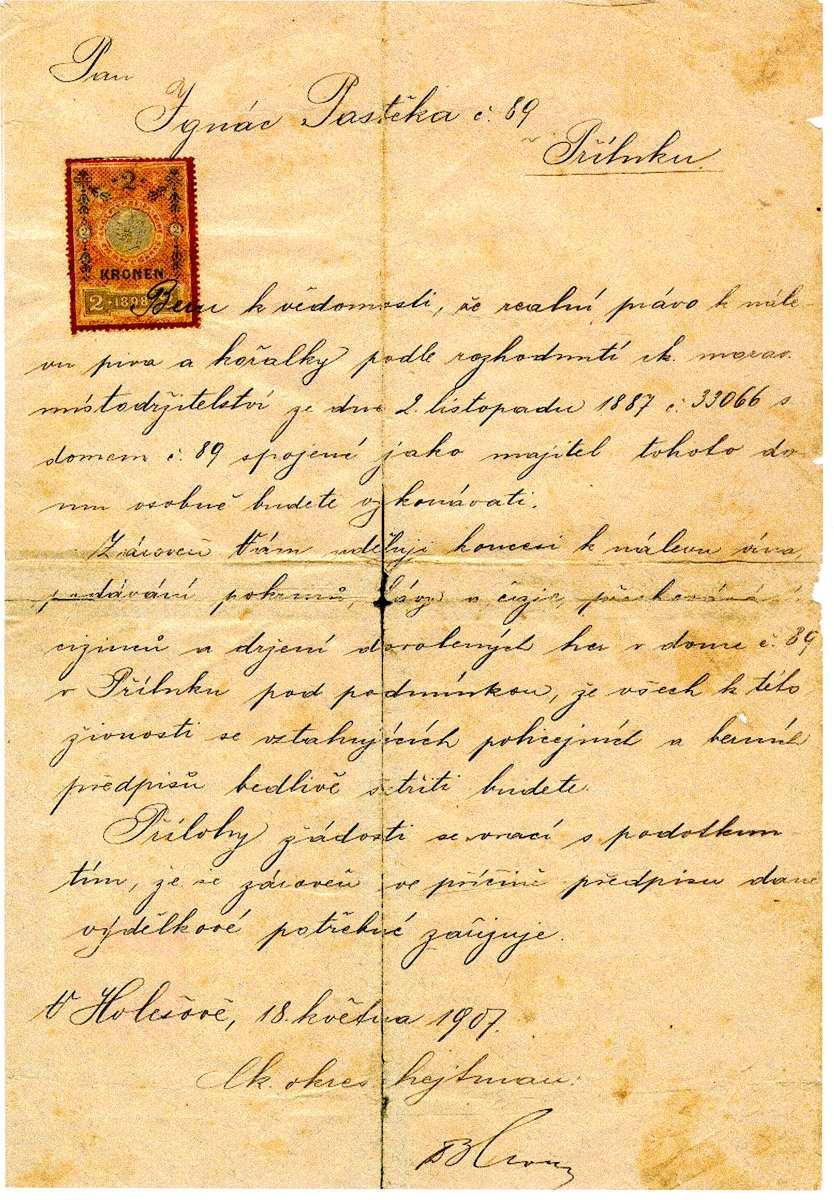 Pan
Ignác Pastěka č. 89
Příluku
2
2 2
KRONEN
2 1898
Beru k vědomosti, že realní právo k nále-
vu piva a kořalky podle rozhodnutí ck. morav.
místodržitelství ze dne 2. listopadu 1887 č. 33066 s
domem č. 89 spojené jako majitel tohoto do-
mu osobně budete vykonávati.
Zároveň Vám uděluji koncesi k nálevu vína,
podávání pokrmů, kávy a čaje, přechovávání
cizinců a držení dovolených her v dome č. 89
v Příluku pod podmínkou, že všech k této
živnosti se vztahujících policejních a berních
předpisů bedlivě šetřiti budete.
Přílohy žádosti se vrací s podotknu-
tím, že se zároveň ve příčině předpisu daně
výdělkové potřebné zařizuje.
V Holešově, 18. května 1907.
Ck. okres. hejtman: